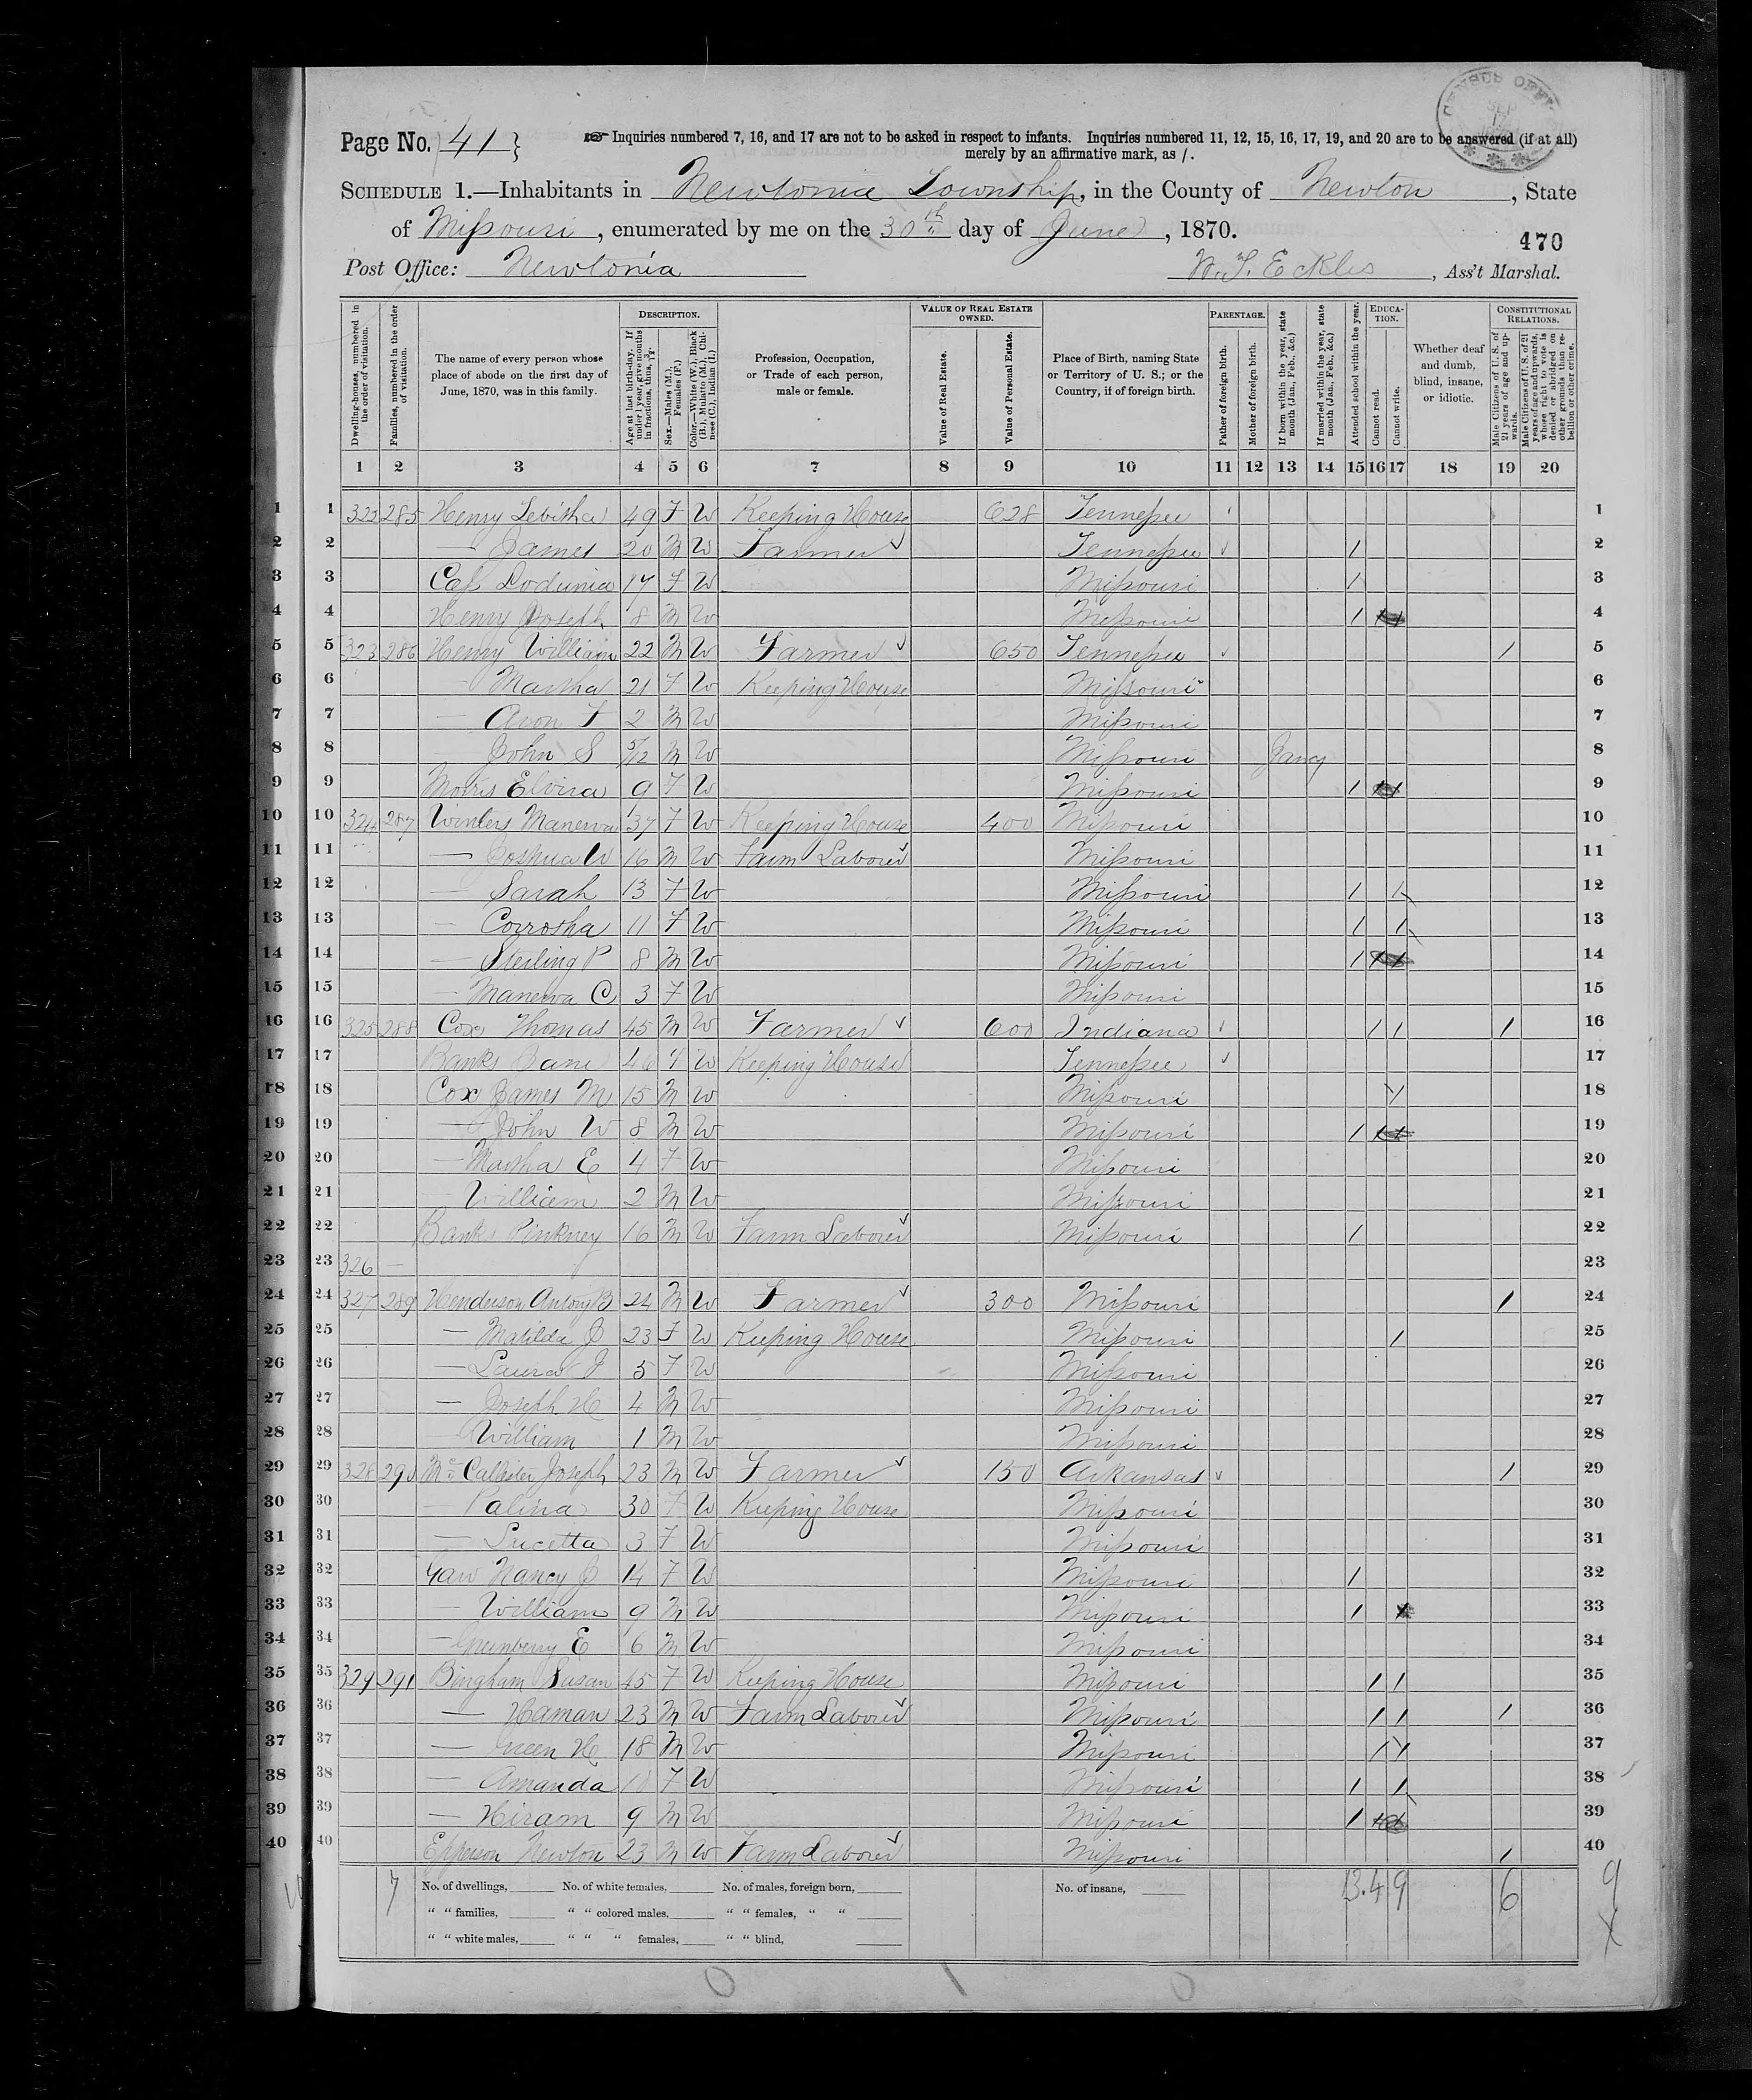 Page No. 41
Inquiries numbered 7, 16, and 17 are not to be asked in respect to infants. Inquiries numbered 11, 12, 15, 16, 17, 19, and 20 are to be answered (if at all)
merely by an affirmative mark, as /.
SCHEDULE 1.—Inhabitants in Newtonia Township, in the County of Newton, State
of Missouri, enumerated by me on the 30th day of June, 1870.
470
Post Office: Newtonia
W. S. Eckles, Ass't Marshal.
Dwelling-houses, numbered in the order of visitation.
Families, numbered in the order of visitation.
The name of every person whose place of abode on the first day of June, 1870, was in this family.
DESCRIPTION.
Age at last birth-day. If under 1 year, give months in fractions, thus, 3/12.
Sex.—Males (M.), Females (F.)
Color.—White (W.), Black (B.), Mulatto (M.), Chinese (C.), Indian (I.)
Profession, Occupation, or Trade of each person, male or female.
VALUE OF REAL ESTATE OWNED.
Value of Real Estate.
Value of Personal Estate.
Place of Birth, naming State or Territory of U. S.; or the Country, if of foreign birth.
PARENTAGE.
Father of foreign birth.
Mother of foreign birth.
If born within the year, state month (Jan., Feb., &c.)
If married within the year, state month (Jan., Feb., &c.)
Attended school within the year.
EDUCATION.
Cannot read.
Cannot write.
Whether deaf and dumb, blind, insane, or idiotic.
CONSTITUTIONAL RELATIONS.
Male Citizens of U. S. of 21 years of age and upwards.
Male Citizens of U. S. of 21 years of age and upwards, whose right to vote is denied or abridged on other grounds than rebellion or other crime.
1 2 3 4 5 6 7 8 9 10 11 12 13 14 15 16 17 18 19 20
1 1 322 285 Henry Lebitha 49 F W Keeping House 628 Tennessee 1
2 2 — James 20 M W Farmer Tennessee / 2
3 3 Cass Lodunia 17 F W Missouri / 3
4 4 Henry Joseph 8 M W Missouri / 4
5 5 323 286 Henry William 22 M W Farmer 650 Tennessee / 5
6 6 — Martha 21 F W Keeping House Missouri 6
7 7 — Avon F 2 M W Missouri 7
8 8 — John S 5/12 M W Missouri Jany 8
9 9 Morris Elvira 9 F W Missouri / 9
10 10 324 287 Winters Manerva 37 F W Keeping House 400 Missouri 10
11 11 — Joshua W 16 M W Farm Laborer Missouri 11
12 12 — Sarah 13 F W Missouri / / 12
13 13 — Corrosha 11 F W Missouri / / 13
14 14 — Sterling P 8 M W Missouri / 14
15 15 — Manerva C 3 F W Missouri 15
16 16 325 288 Cox Thomas 45 M W Farmer 600 Indiana / / / 16
17 17 Banks Jane 46 F W Keeping House Tennessee 17
18 18 Cox James M 15 M W Missouri / 18
19 19 — John W 8 M W Missouri / 19
20 20 — Martha E 4 F W Missouri 20
21 21 — William 2 M W Missouri 21
22 22 Banks Pinkney 16 M W Farm Laborer Missouri / 22
23 23 326 — 23
24 24 327 289 Henderson Antony B 24 M W Farmer 300 Missouri / 24
25 25 — Matilda J 23 F W Keeping House Missouri / 25
26 26 — Laura J 5 F W Missouri 26
27 27 — Joseph H 4 M W Missouri 27
28 28 — William 1 M W Missouri 28
29 29 328 290 McCallister Joseph 23 M W Farmer 150 Arkansas / 29
30 30 — Palina 30 F W Keeping House Missouri 30
31 31 — Lucetta 3 F W Missouri 31
32 32 Yaw Nancy J 14 F W Missouri / 32
33 33 — William 9 M W Missouri / 33
34 34 — Greenberry E 6 M W Missouri 34
35 35 329 291 Bingham Susan 45 F W Keeping House Missouri / / 35
36 36 — Haman 23 M W Farm Laborer Missouri / / / 36
37 37 — Green H 18 M W Missouri / / 37
38 38 — Amanda 10 F W Missouri / / 38
39 39 — Hiram 9 M W Missouri / 39
40 40 Epperson Newton 23 M W Farm Laborer Missouri / 40
7 No. of dwellings, No. of white females, No. of males, foreign born, No. of insane, 13. 4 9 6 9
" " families, " " colored males, " " females, " "
" " white males, " " " females, " " blind,